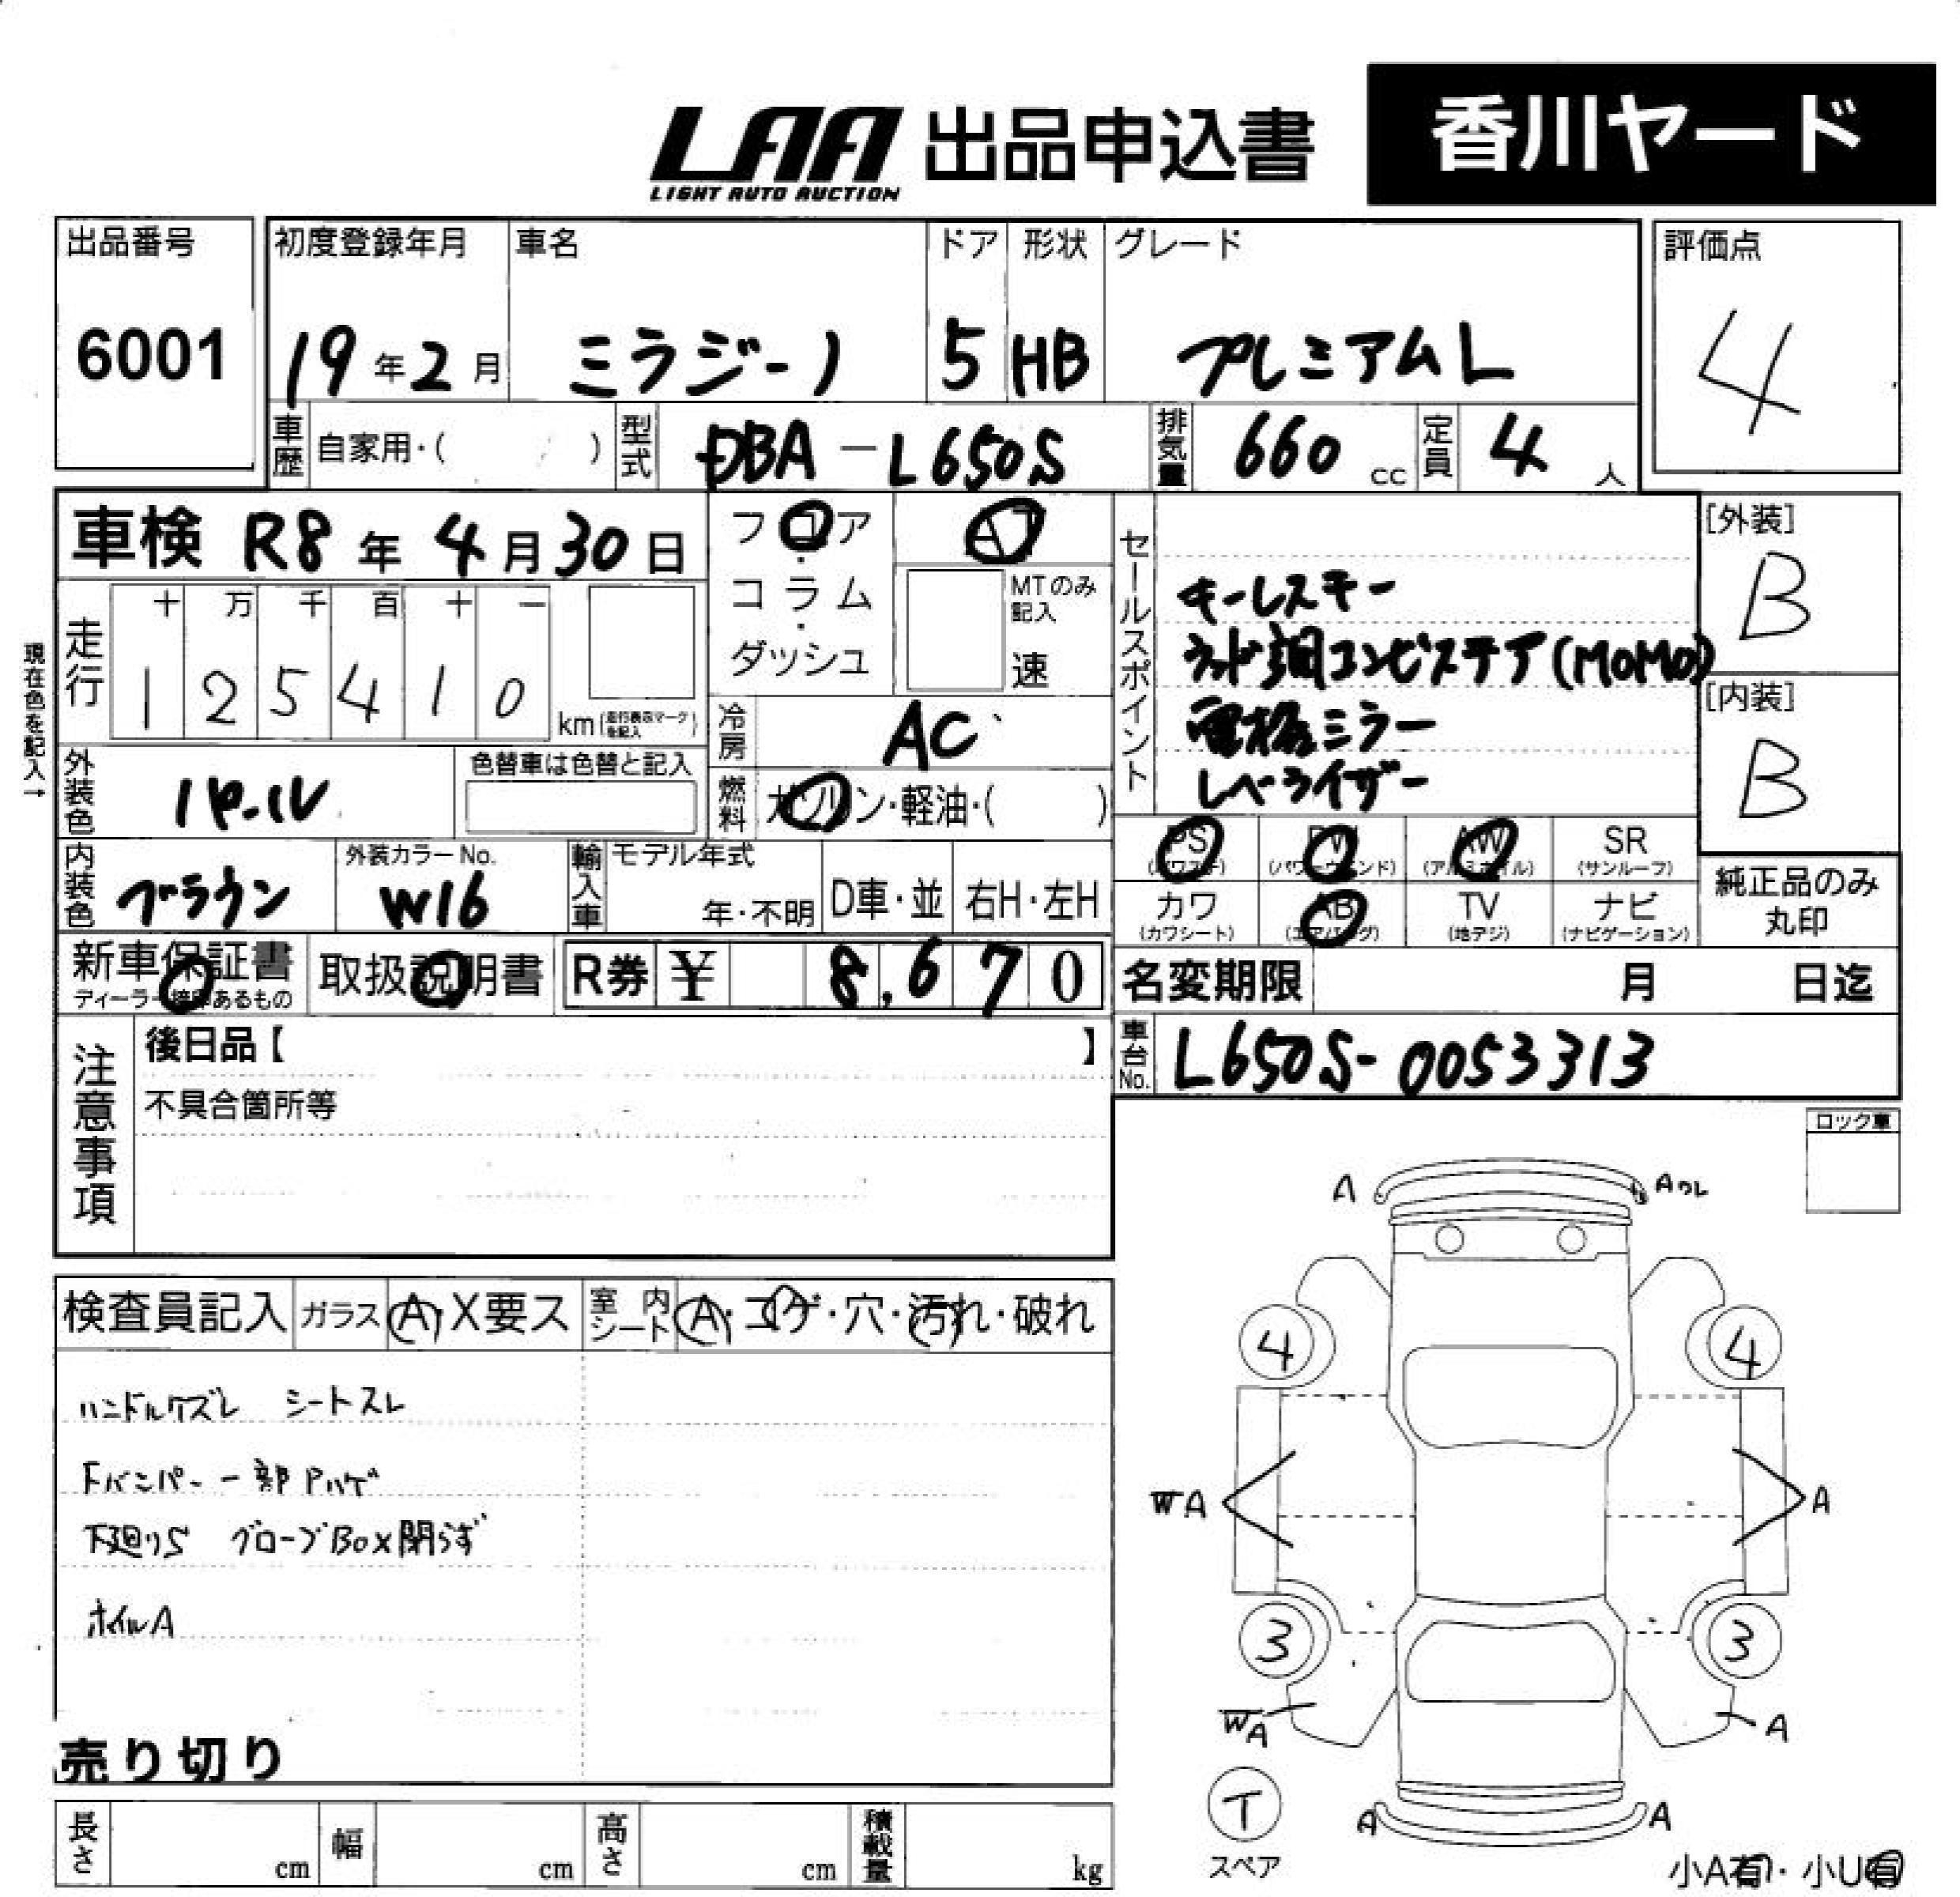 LAA 出品申込書 香川ヤード
LIGHT AUTO AUCTION
出品番号 初度登録年月 車名 ドア 形状 グレード 評価点
6001 19年2月 ミラジーノ 5 HB プレミアムL 4
車歴 自家用・( ) 型式 DBA-L650S 排気量 660 cc 定員 4 人
車検 R8年4月30日
フロア AT
コラム
ダッシュ
MTのみ記入
速
セールスポイント
キーレスキー
ウッド調コンビステア(MOMO)
電格ミラー
レベライザー
[外装]
B
[内装]
B
現在色を記入↑
走行 十 万 千 百 十 一
1 2 5 4 1 0 km (走行表示マークを記入)
冷房 AC
外装色 パール 色替車は色替と記入
燃料 ガソリン・軽油・( )
PS (パワステ) PW (パワーウィンド) AW (アルミホイル) SR (サンルーフ)
カワ (カワシート) AB (エアバッグ) TV (地デジ) ナビ (ナビゲーション)
純正品のみ
丸印
内装色 ブラウン 外装カラーNo. W16 輸入車 モデル年式 年・不明 D車・並 右H・左H
新車保証書 ディーラー捺印あるもの 取扱説明書 R券 ¥ 8,670
名変期限 月 日迄
車台No. L650S-0053313
注意事項
後日品【 】
不具合箇所等
ロック車
検査員記入 ガラス A・X要ス 室内シート A・コゲ・穴・汚れ・破れ
ハンドルクズレ シートスレ
Fバンパー一部Pハゲ
下廻りS グローブBOX閉らず
ホイルA
売り切り
長さ cm 幅 cm 高さ cm 積載量 kg
A Aワレ
4 4
WA A
3 3
WA A
T
スペア
A A
小A有・小U有